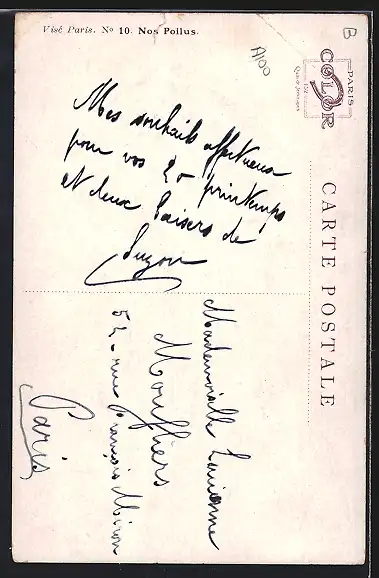 Visé Paris. Nº 10. Nos Poilus.
B
A100
PARIS
COLOR
152
Quai de Jemmapes
CARTE POSTALE
Mes souhaits affectueux
pour vos 20 printemps
et deux baisers de
Suzon
Mademoiselle Lucienne
Mouthiers
52 rue François Miron
Paris